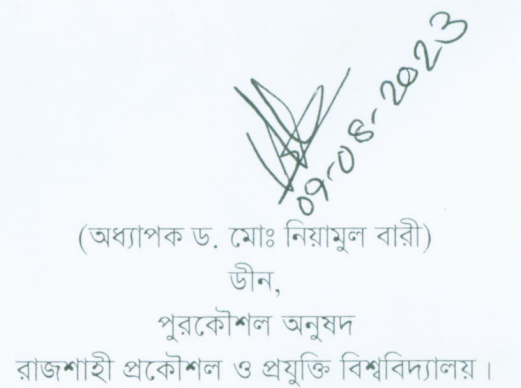 09-08-2023
(অধ্যাপক ড. মোঃ নিয়ামুল বারী)
ডীন,
পুরকৌশল অনুষদ
রাজশাহী প্রকৌশল ও প্রযুক্তি বিশ্ববিদ্যালয়।